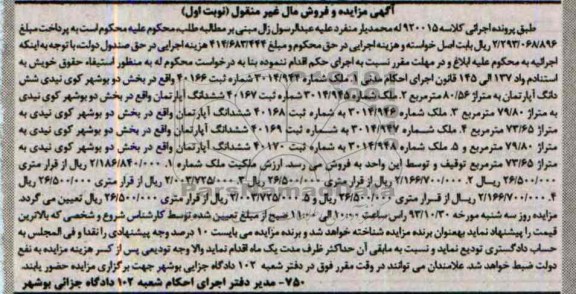 آگهی مزایده و فروش مال غیر منقول (نوبت اول)
طبق پرونده اجرائی کلاسه ۹۲۰۰۱۵ له محمدیار منفرد علیه عبدالرسول زال مبنی بر مطالبه طلب، محکوم علیه محکوم است به پرداخت مبلغ
۲/۲۹۳/۰۶۸/۸۹۶ ریال بابت اصل خواسته و هزینه اجرایی در حق محکوم و مبلغ ۴۱۴/۶۸۳/۴۴۴ هزینه اجرایی در حق صندوق دولت، با توجه به اینکه
اجرائیه به محکوم علیه ابلاغ و در مهلت مقرر نسبت به اجرای حکم اقدام ننموده بنا به درخواست محکوم له به منظور استیفاء حقوق خویش به
استناد مواد ۱۳۷ الی ۱۴۵ قانون اجرای احکام مدنی ۱. ملک شماره ۳۰۱۴/۹۴۴ شماره ثبت ۴۰۱۶۶ واقع در بخش دو بوشهر کوی نیدی شش
دانگ آپارتمان به متراژ ۸۰/۵۶ مترمربع ۲. ملک شماره ۳۰۱۴/۹۴۵ شماره ثبت ۴۰۱۶۷ ششدانگ آپارتمان واقع در بخش دو بوشهر کوی نیدی
به متراژ ۷۹/۸۰ مترمربع ۳. ملک شماره ۳۰۱۴/۹۴۶ به شماره ثبت ۴۰۱۶۸ ششدانگ آپارتمان واقع در بخش دو بوشهر کوی نیدی به
متراژ ۷۳/۶۵ مترمربع ۴. ملک شماره ۳۰۱۴/۹۴۷ به شماره ثبت ۴۰۱۶۹ ششدانگ آپارتمان واقع در بخش دو بوشهر کوی نیدی به
متراژ ۷۹/۸۰ مترمربع و ۵. ملک شماره ۳۰۱۴/۹۴۸ به شماره ثبت ۴۰۱۷۰ ششدانگ آپارتمان واقع در بخش دو بوشهر کوی نیدی به
متراژ ۷۳/۶۵ مترمربع توقیف و توسط این واحد به فروش می رسد. ارزش ملکیت ملک شماره ۱. ۲/۱۸۶/۸۴۰/۰۰۰ ریال از قرار متری
۲۶/۵۰۰/۰۰۰ ریال ۲. ۲/۱۶۶/۷۰۰/۰۰۰ ریال از قرار متری ۲۶/۵۰۰/۰۰۰ ریال ۳. ۲/۰۰۳/۷۲۵/۰۰۰ ریال از قرار متری ۲۶/۵۰۰/۰۰۰ ریال
۴. ۲/۱۶۶/۷۰۰/۰۰۰ ریال از قرار متری ۲۶/۵۰۰/۰۰۰ ریال و ۵. ۲/۰۰۳/۷۲۵/۰۰۰ ریال از قرار متری ۲۶/۵۰۰/۰۰۰ ریال تعیین می گردد.
مزایده روز سه شنبه مورخه ۹۳/۱۰/۳۰ راس ساعت ۱۰:۰۰ الی ۱۱:۰۰ صبح از مبلغ تعیین شده توسط کارشناس شروع و شخصی که بالاترین
قیمت را پیشنهاد نماید بعنوان برنده مزایده شناخته خواهد شد و برنده مزایده می بایست ۱۰ درصد وجه پیشنهادی را نقدا و فی المجلس به
حساب دادگستری تودیع نماید و نسبت به مابقی آن حداکثر ظرف مدت یک ماه اقدام نماید والا وجه تودیعی پس از کسر هزینه مزایده به نفع
دولت ضبط خواهد شد. علاقمندان می توانند در وقت مقرر فوق در دفتر شعبه ۱۰۲ دادگاه جزایی بوشهر جهت برگزاری مزایده حضور یابند.
۷۵۰- مدیر دفتر اجرای احکام شعبه ۱۰۲ دادگاه جزائی بوشهر